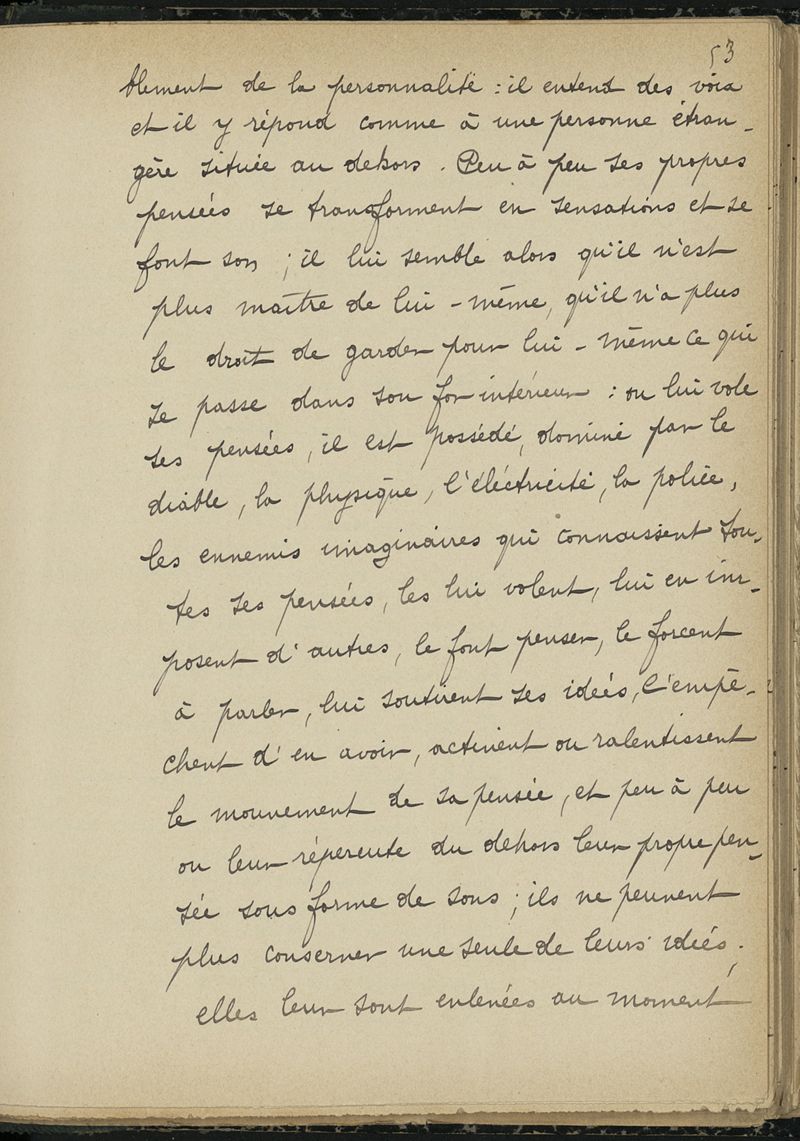 53
blement de la personnalité : il entend des voix
et il y répond comme à une personne étran-
gère située au dehors. Peu à peu ses propres
pensées se transforment en sensations et se
font son ; il lui semble alors qu'il n'est
plus maître de lui-même, qu'il n'a plus
le droit de garder pour lui-même ce qui
se passe dans son for intérieur : on lui vole
ses pensées, il est possédé, dominé par le
diable, la physique, l'éléctricité, la police,
les ennemis imaginaires qui connaissent tou-
tes ses pensées, les lui volent, lui en im-
posent d'autres, le font penser, le forcent
à parler, lui soutirent ses idées, l'empê-
chent d'en avoir, activent ou ralentissent
le mouvement de sa pensée, et peu à peu
on leur répercute du dehors leur propre pen-
sée sous forme de sons ; ils ne peuvent
plus conserver une seule de leurs idées ;
elles leur sont enlevées au moment